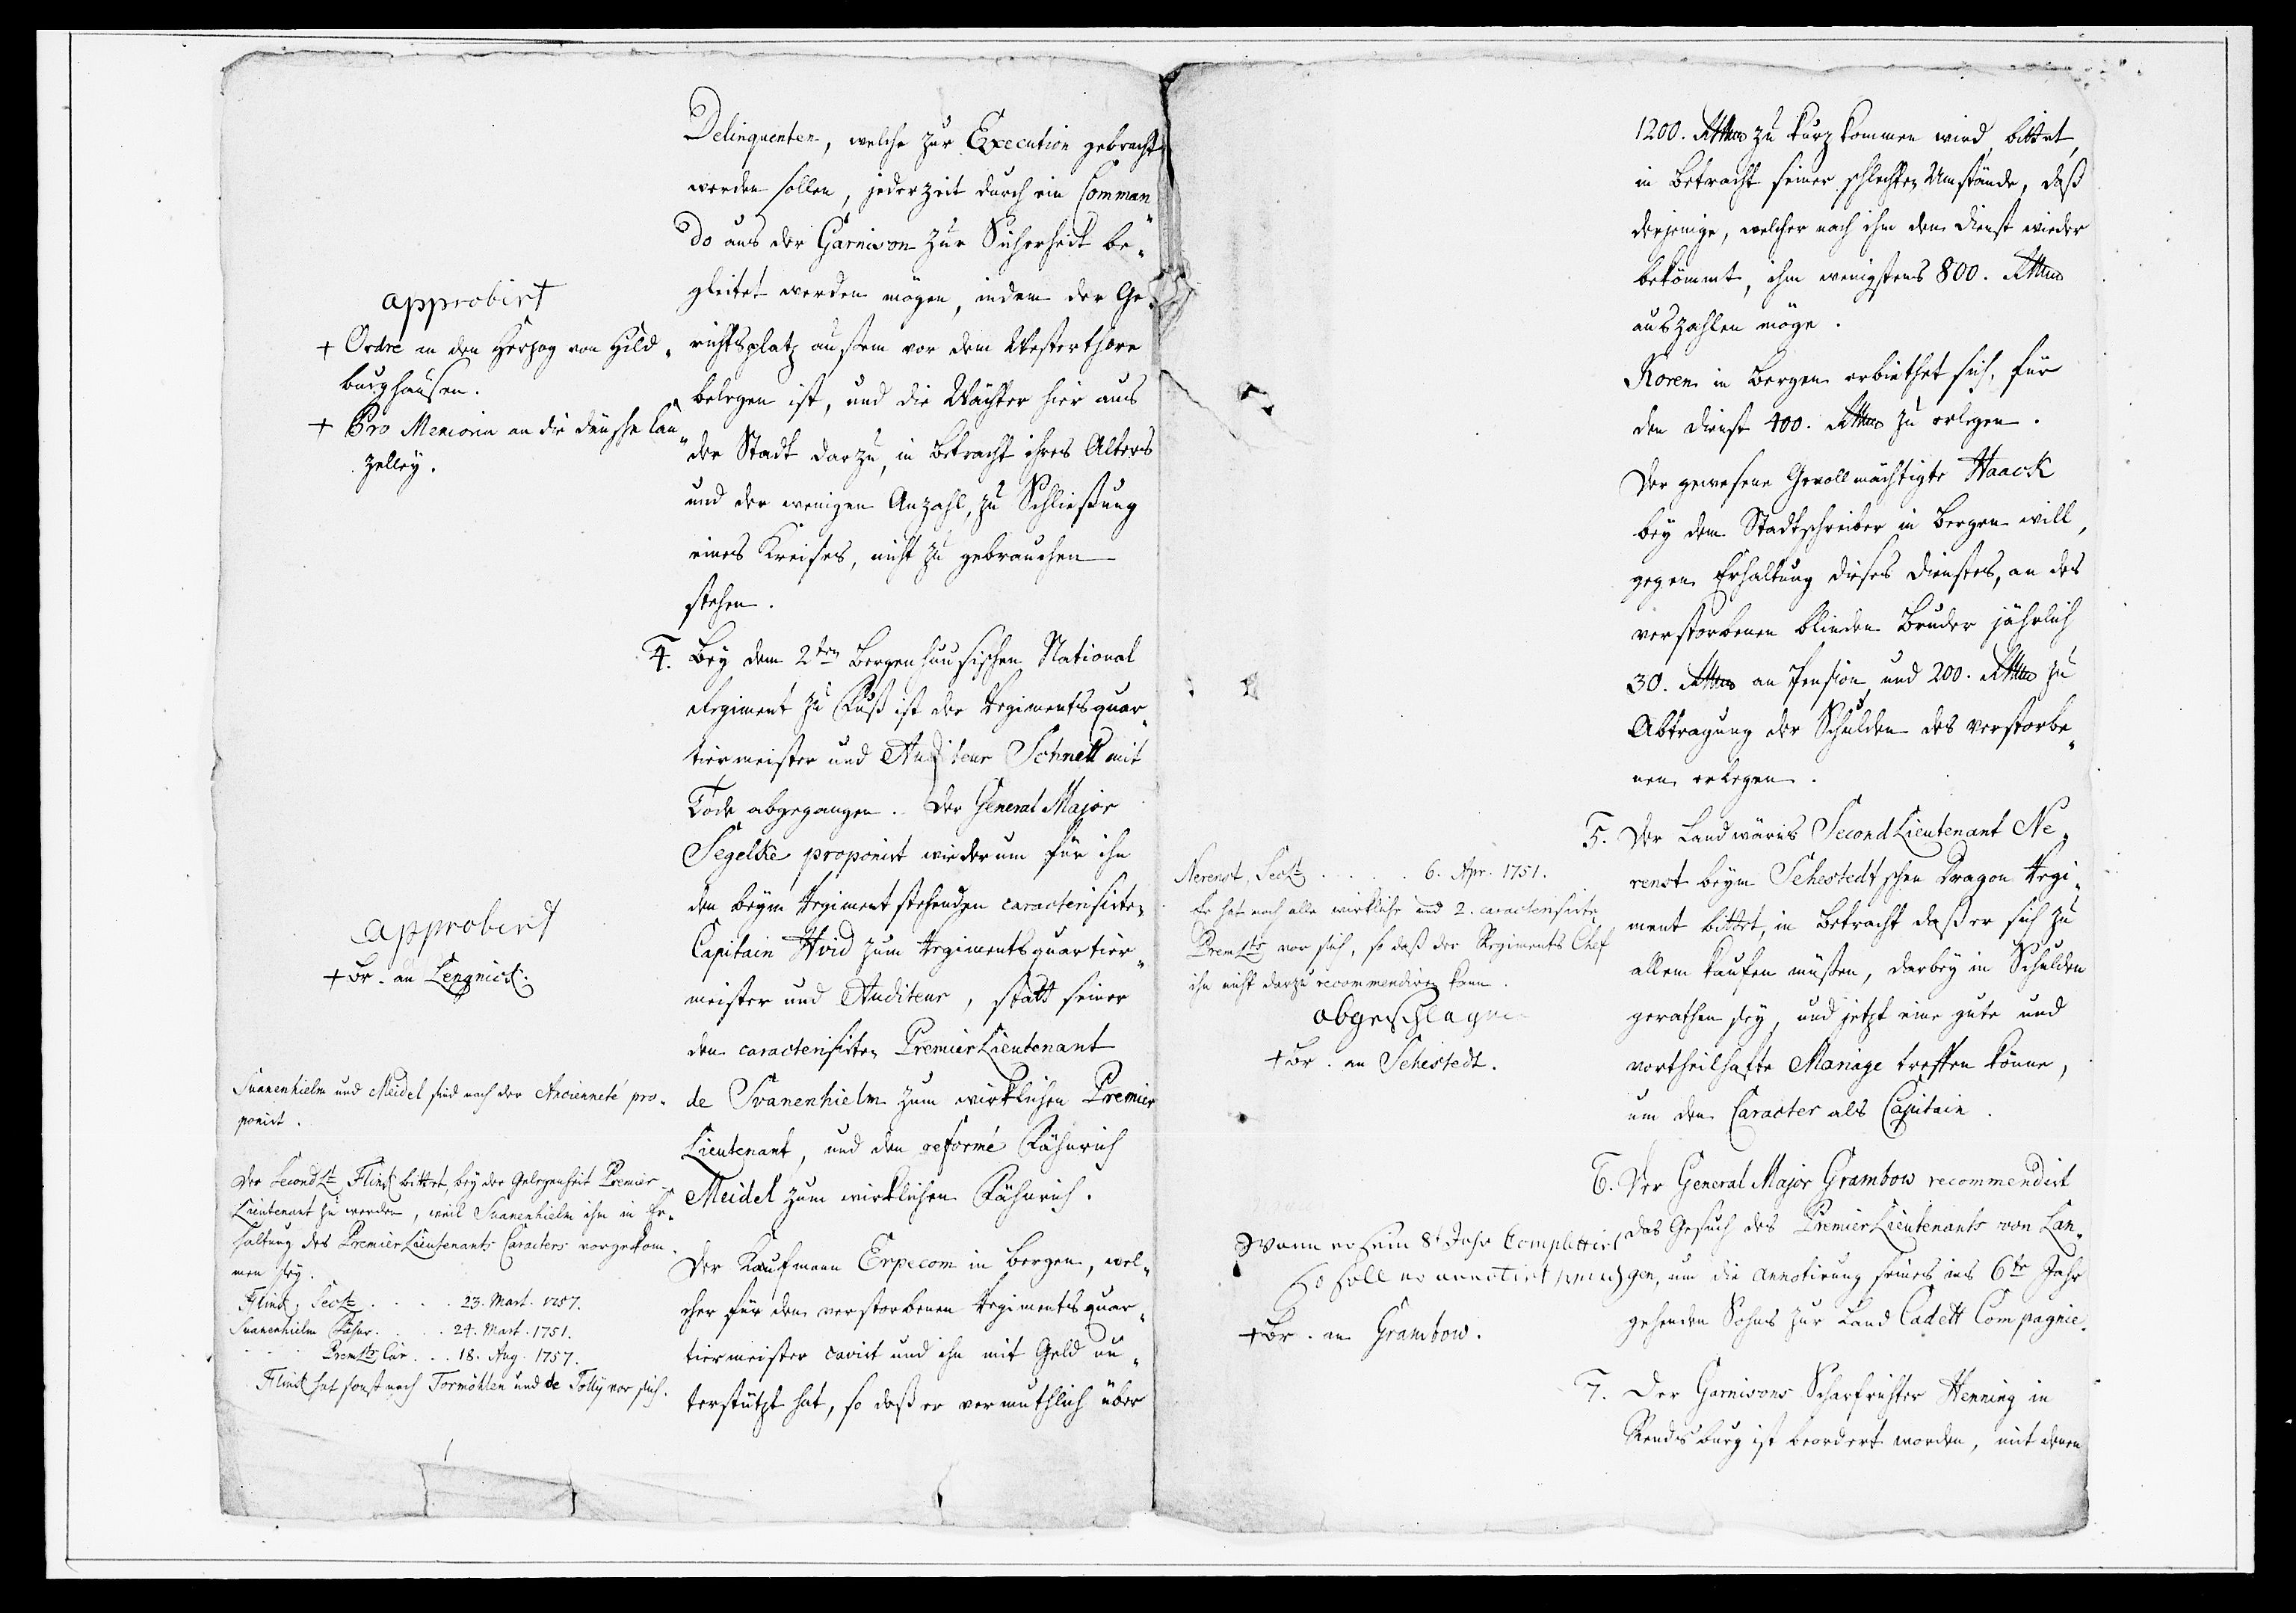 Delinquenten, welche zur Execution gebracht
werden sollen, jederzeit durch ein Comman„
do aus der Garnison zur Sicherheit be„
gleitet werden mögen, indem der Ge„
richtsplatz aussen vor dem Westerthore
belegen ist, und die Wächter hier aus
der Stadt darzu, in Betracht ihres Alters
und der wenigen Anzahl, zu Schließung
eines Kreises, nicht zu gebrauchen
stehen.
approbirt
+ Ordre an den Herzog von Hild„
burghausen.
+ Pro Memoria an die dänische Can„
zelley.
4. Bey dem 2ten Bergenhuusischen National
Regiment zu Fuß ist der Regimentsquar„
tiermeister und Auditeur Schnell mit
Tode abgegangen. Der General Major
Segelke proponirt wiederum für ihn
den beym Regiment stehenden caracterisirten
Capitain Hvid zum Regimentsquartier„
meister und Auditeur, statt seiner
den caracterisirten Premier Lieutenant
de Svanenhielm zum wirklichen Premier
Lieutenant, und den reformé Fähnrich
Meidel zum wirklichen Fähnrich.
Der Kaufmann Erpecom in Bergen, wel„
cher für den verstorbenen Regimentsquar„
tiermeister cavirt und ihn mit Geld un„
terstützt hat, so daß er vermuthlich über
approbirt
+ Br. an Lengnick.
Svanenhielm und Meidel sind nach der Ancienneté pro„
ponirt.
Der Second Lt. Flinck bittet, bey der Gelegenheit Premier
Lieutenant zu werden, weil Svanenhielm ihm in Er„
haltung des Premier Lieutenants Caracters vorgekom„
men sey.
Flinck, Seclt . . . . 23. Mart. 1757.
Svanenhielm Fähnr. . . . 24. Mart. 1751.
PremLt Car . . . 18. Aug. 1757.
Flinck hat sonst noch Tormöhlen und de Tolly vor sich.
1200. Rthlr zu kurz kommen wird, bittet,
in Betracht seiner schlechten Umstände, daß
derjenige, welcher nach ihm den Dienst wieder
bekömmt, ihm wenigstens 800. Rthlr
auszahlen möge.
Koren in Bergen erbiethet sich, für
den Dienst 400. Rthlr zu erlegen.
Der gewesene Gevollmächtigte Haack
bey dem Stadtschreiber in Bergen will,
gegen Erhaltung dieses Dienstes, an des
verstorbenen blinden Bruder jährlich
30. Rthlr an Pension, und 200. Rthlr zu
Abtragung der Schulden des verstorbe„
nen erlegen.
5. Der Landwärts Second Lieutenant Ne„
renst beym Sehestedtschen Dragon Regi„
ment bittet, in Betracht daß er sich zu
allem kaufen müßen, darbey in Schulden
gerathen sey, und jetzt eine gute und
vortheilhafte Mariage treffen könne,
um den Caracter als Capitain.
Nerenst, Seclt . . . . . 6. Apr. 1751.
Er hat noch alle wirkliche und 2. caracterisirte
PremLts vor sich, so daß der Regiments Chef
ihn nicht darzu recommendiren kann.
abgeschlagen
+ Br. an Sehestedt.
6. Der General Major Grambow recommendirt
das Gesuch des Premier Lieutenants von Lan„
gen, um die Annotirung seines ins 6te Jahr
gehenden Sohns zur Land Cadett Compagnie.
Wann er sein 8t Jahr Complettirt
so soll er annotirt
+ Br. an Grambow.
7. Der Garnisons Scharfrichter Henning in
Rendsburg ist beordert worden, mit denen